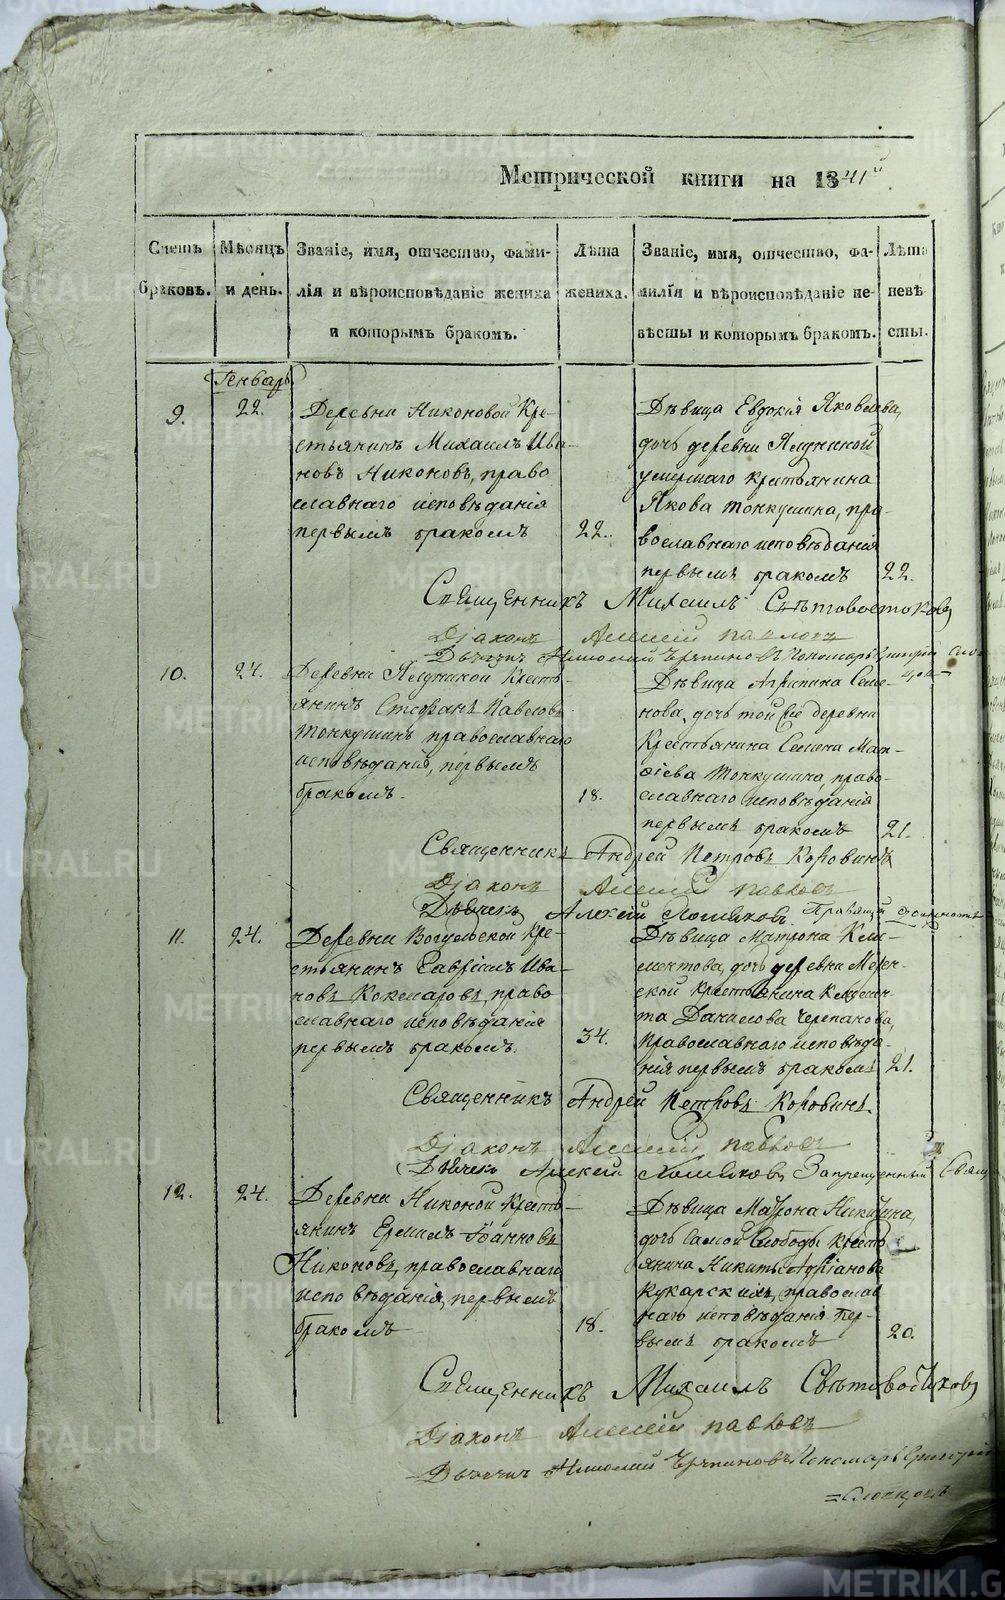 Метрической книги на 1841й
Счетъ браковъ.
Мѣсяцъ и день.
Званіе, имя, отчество, фами-
лія и вѣроисповѣданіе жениха
и которымъ бракомъ.
Лѣта жениха.
Званіе, имя, отчество, фа-
милія и вѣроисповѣданіе не-
вѣсты и которымъ бракомъ.
Лѣта невѣ
сты.
Генварь
9.
22.
Деревни Никоновой Кре-
стьянинъ Михаилъ Ива
новъ Никоновъ, право
славнаго исповѣданія
первымъ бракомъ
22.
Дѣвица Евдокія Яковлева,
дочь деревни
умершаго крестьянина
Якова Тонкушина, пра-
вославнаго исповѣданія
первымъ бракомъ
22.
Священникъ Михаилъ Свѣтовостоковъ
Діаконъ Алексій Павловъ
Дьячекъ Николай Пономарь Григорій
10.
24.
Деревни Кресть-
янинъ Стефанъ Павловъ
Тонкушинъ православнаго
исповѣданія, первымъ
бракомъ.
18.
Дѣвица Агрипина Семе-
нова, дочь той же деревни
Крестьянина Семена Мат-
ѳіева Тонкушина, право-
славнаго исповѣданія
первымъ бракомъ
21.
Священникъ Андрей Петровъ Коровинъ
Діаконъ Алексій Павловъ
Дьячекъ Алексій Хомяковъ.
11.
24.
Деревни Вогульской Кре-
стьянинъ Гавріилъ Ива-
новъ Кокшаровъ, право
славнаго исповѣданія
первымъ бракомъ.
34.
Дѣвица Матрона Кли-
ментова, дочь деревни
ской Крестьянина Климен-
та Данилова Черепанова,
православнаго исповѣда-
нія первымъ бракомъ
21.
Священникъ Андрей Петровъ Коровинъ
Діаконъ Алексій Павловъ
Дьячекъ Алексій Хомяковъ, Запрещенный
12.
24.
Деревни Никоной Кресть-
янинъ Ермилъ Іоанновъ
Никоновъ, православнаго
исповѣданія, первымъ
бракомъ
18.
Дѣвица Матрона Никитина,
дочь Самой Слободы Кресть
янина Никиты Адріанова
Кукарскихъ, православ
наго исповѣданія пер-
вымъ бракомъ
20.
Священникъ Михаилъ Свѣтовостоковъ
Діаконъ Алексій Павловъ
Дьячекъ Николай Пономарь Григорій
METRIKI.GASO-URAL.RU